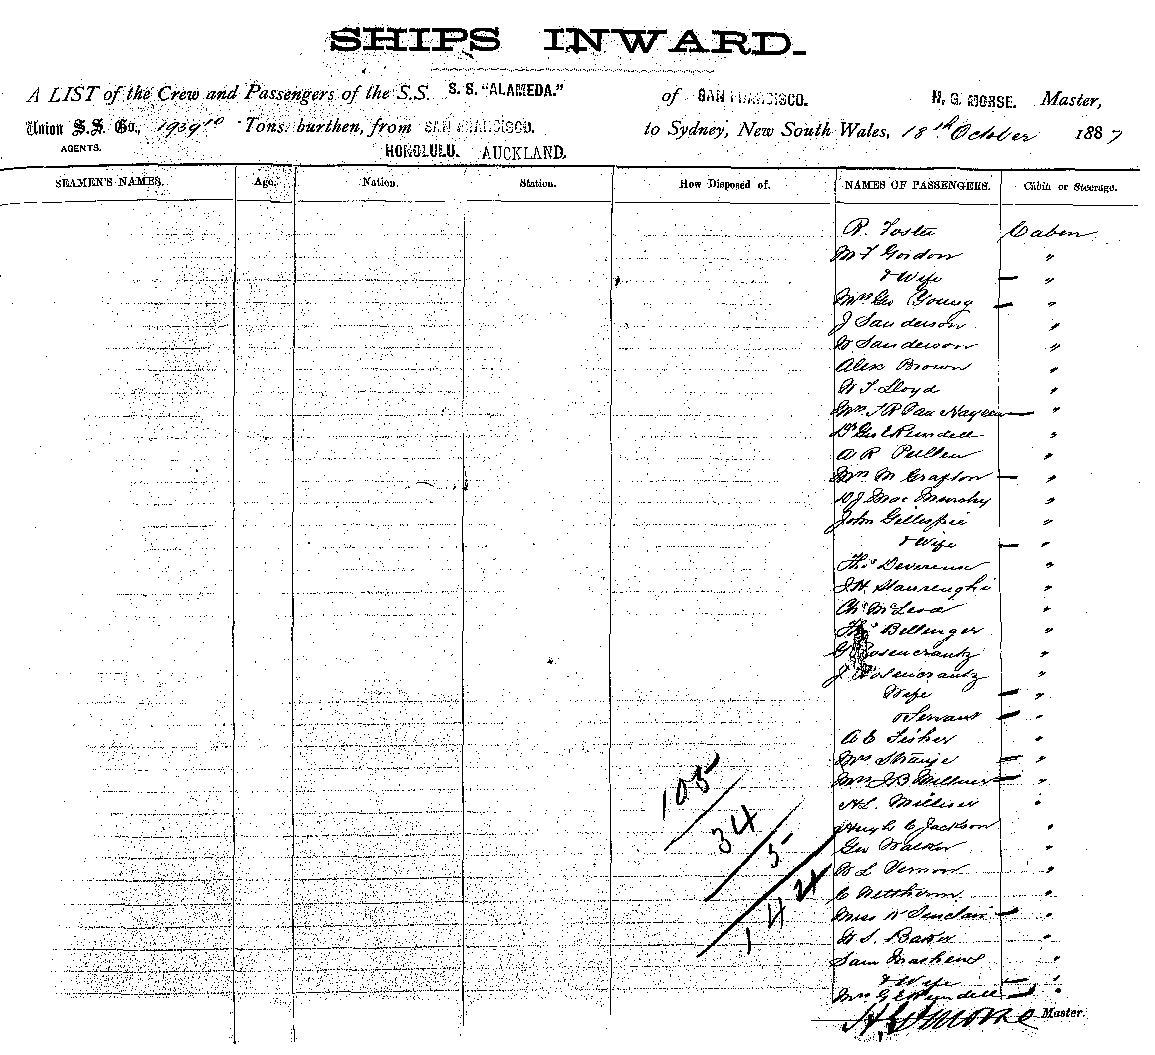 SHIPS INWARD.
A LIST of the Crew and Passengers of the S.S. S. S. "ALAMEDA." of SAN FRANCISCO. H. G. MORSE. Master,
Union S.S. Co., 1939 10 Tons burthen, from SAN FRANCISCO. to Sydney, New South Wales, 18th October 1887
AGENTS. HONOLULU. AUCKLAND.
SEAMEN'S NAMES. Age. Nation. Station. How Disposed of. NAMES OF PASSENGERS. Cabin or Steerage.
R. Foster Cabin
M F Gordon "
& Wife — "
Mrs Geo Young — "
J Sanderson "
W Sanderson "
Alex Brown "
W F Lloyd "
Mrs — "
Dr Geo E Rundell "
A R Pullen "
Mrs M Grafton — "
D J Mac "
John Gillespie "
& Wife — "
Thos Devereux "
J.H. "
Chs "
Thos Bellenger "
G Rosencrantz "
J. Rosencrantz "
Wife — "
& Servant — "
A E Fisher "
Mrs — "
Mrs J B — "
H L "
Hugh C Jackson "
Geo Walker "
W L Vernon "
C "
Miss W Sinclair — "
W S. Baker "
Sam "
& Wife — "
Mrs G E Rundell — "
105
34
5
144
H G Morse Master.